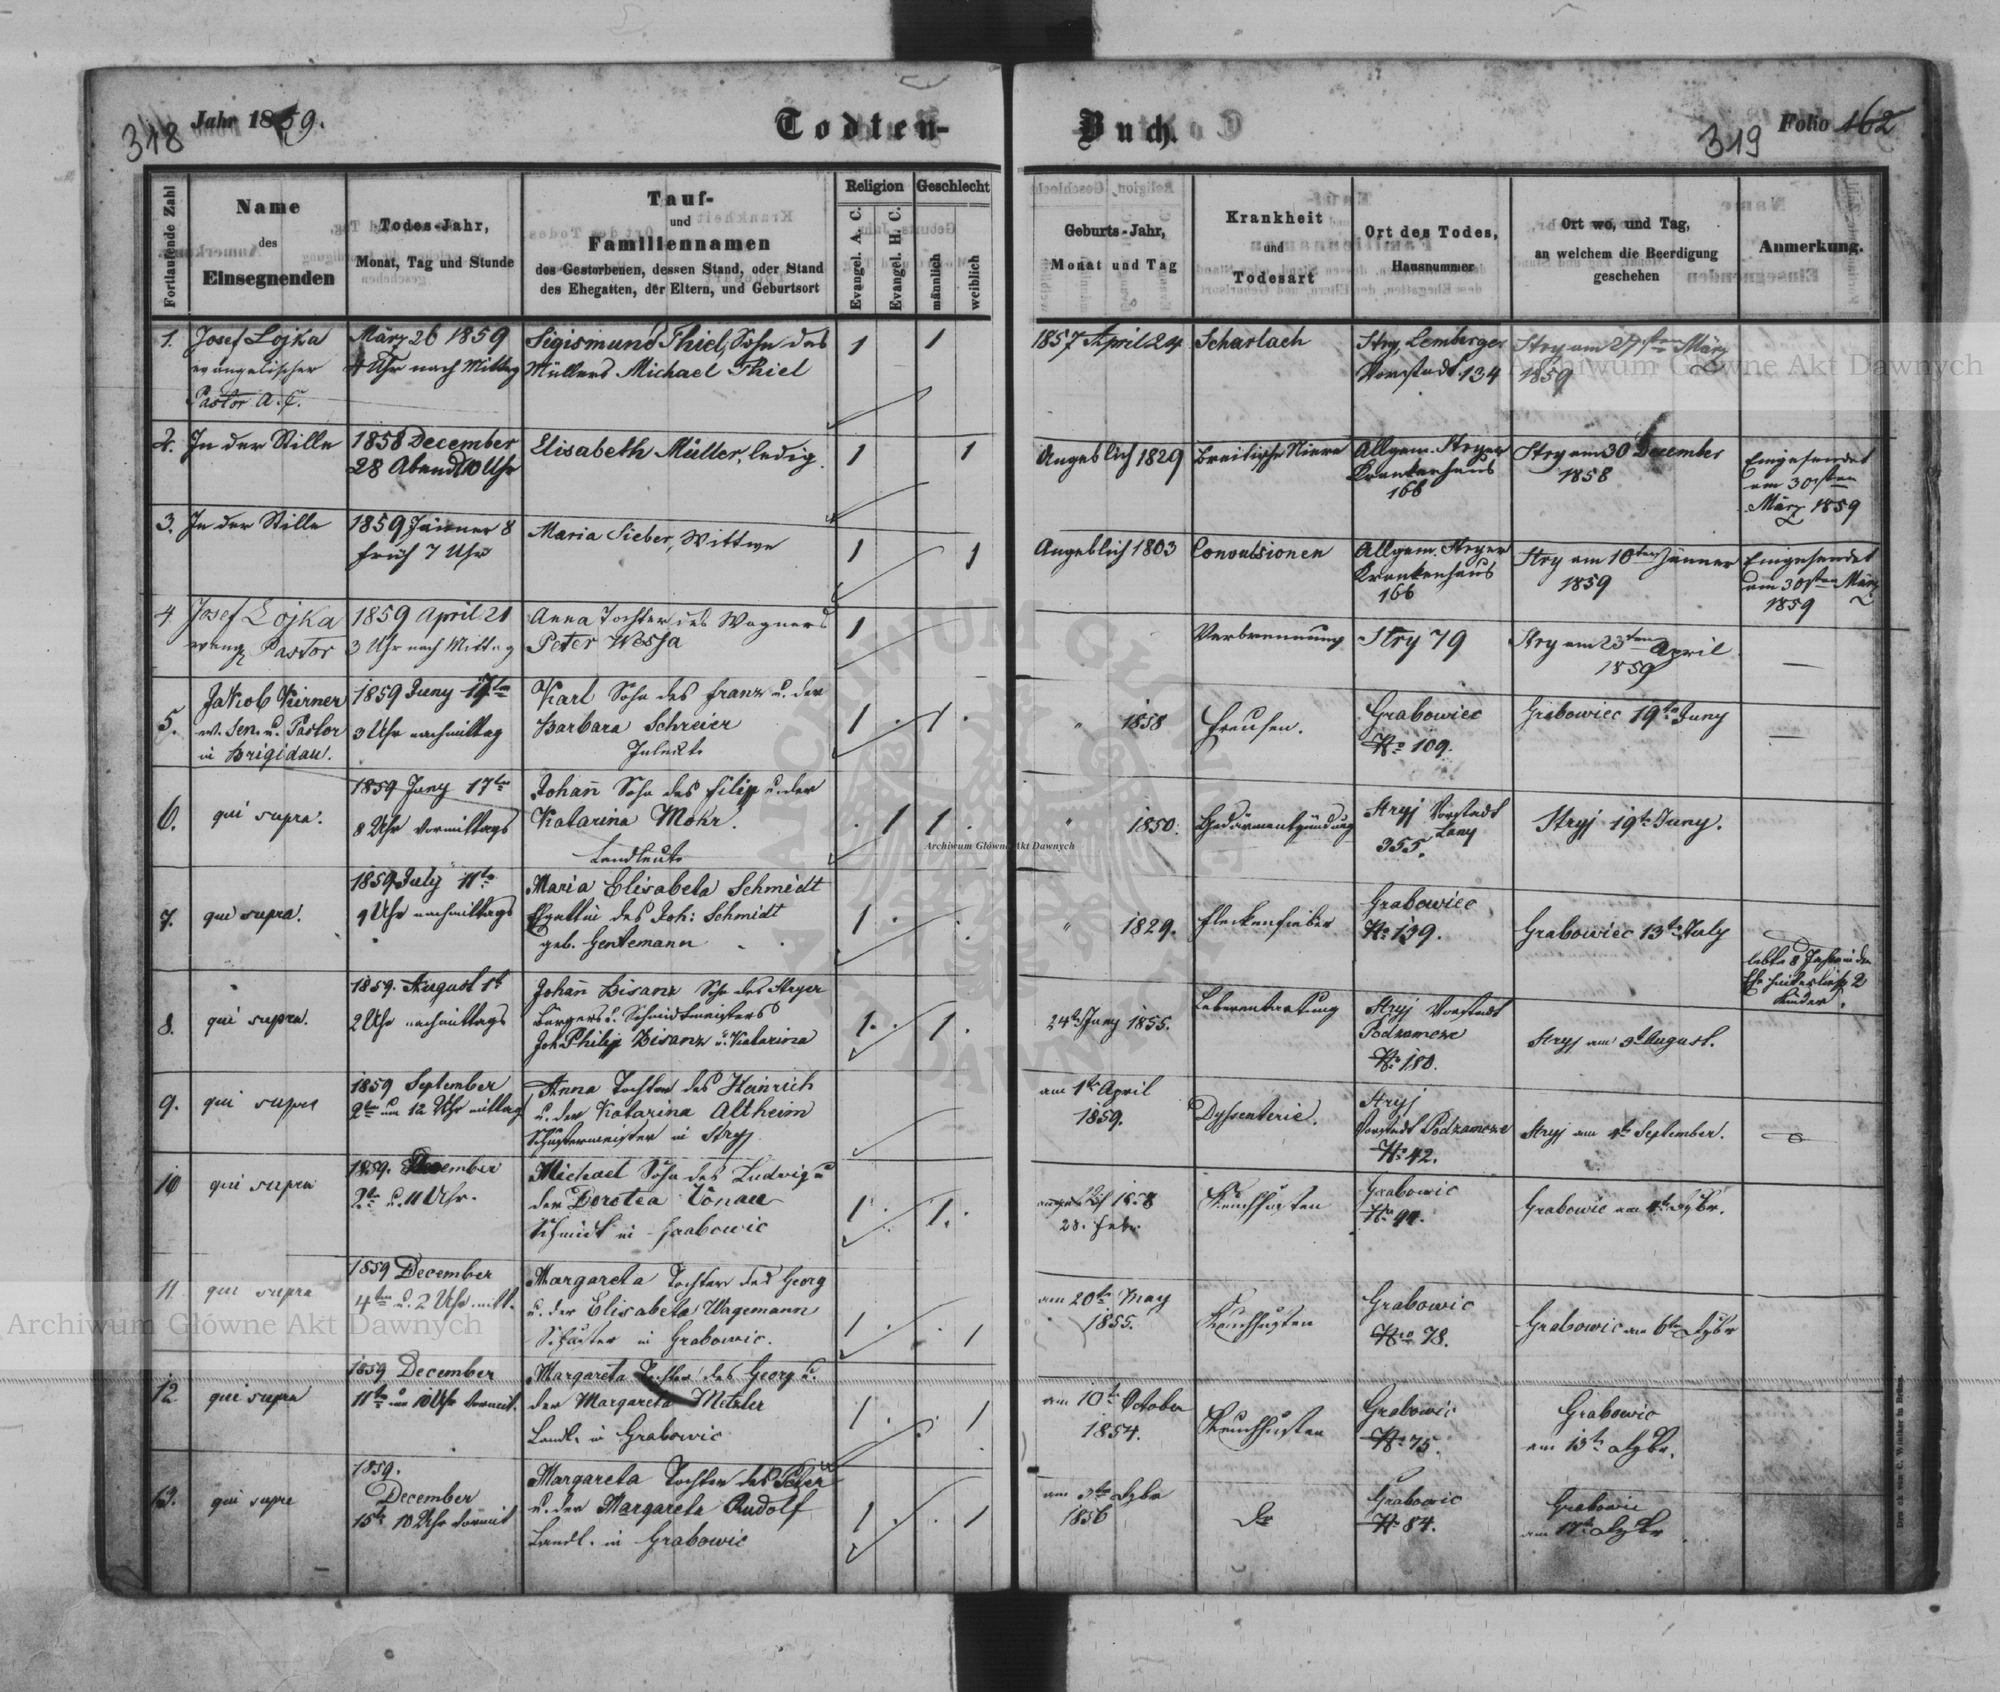 318
Jahr 1859.
Todten-
Buch.
319
Folio 162
Fortlaufende Zahl
Name
des
Einsegnenden
Todes-Jahr,
Monat, Tag und Stunde
Tauf-
und
Familiennamen
des Gestorbenen, dessen Stand, oder Stand
des Ehegatten, der Eltern, und Geburtsort
Religion
Evangel. A. C.
Evangel. H. C.
Geschlecht
männlich
weiblich
Geburts-Jahr,
Monat und Tag
Krankheit
und
Todesart
Ort des Todes,
Hausnummer
Ort wo, und Tag,
an welchem die Beerdigung
geschehen
Anmerkung.
1.
Josef Lojka
evangelischer
Pastor A. C.
März 26 1859
4 Uhr nach Mittag
Sigismund Thiel, Sohn des
Müllers Michael Thiel
1
1
1857 April 24
Scharlach
Stry, Lemberger
Vorstadt 134
Stry am 27sten März
1859
2.
In der Stille
1858 December
28 Abend 10 Uhr
Elisabeth Müller, ledig.
1
1
Angeblich 1829
Allgem. Stryer
Krankenhaus
166
Stry am 30 December
1858
Eingesendet
am 30sten
März 1859
3.
In der Stille
1859 Jänner 8
früh 7 Uhr
Maria Sieber, Wittwe
1
1
Angeblich 1803
Convulsionen
Allgem. Stryer
Krankenhaus
166
Stry am 10ten Jänner
1859
Eingesendet
am 30sten März
1859
4
Josef Lojka
evang. Pastor
1859 April 21
3 Uhr nach Mittag
Anna Tochter des Wagners
Peter Wessa
1
Verbrennung
Stry 79
Stry am 23ten April
1859
5.
Jakob Kerner
ev. Sen. u. Pastor
in Brigidau.
1859 Juny 17ten
3 Uhr nachmittag
Karl Sohn des Franz u. der
Barbara Schreier
1.
1.
" 1858
Fraisen.
Grabowiec
No 109.
Grabowiec 19te Juny
6.
qui supra.
1859 Juny 17te
8 Uhr vormittags
Johann Sohn des Filip u. der
Katarina Mohr.
Landleute
. 1
1.
" 1850.
Gedärmentzündung
Stryj Vorstadt
Lany
355.
Stryj 19te Juny.
7.
qui supra.
1859 July 11te
9 Uhr nachmittags
Maria Elisabeta Schmidt
Ehgattin des Joh: Schmidt
geb. Gentemann
1.
" 1829.
Fleckenfieber
Grabowiec
No 139.
Grabowiec 13te July
lebte 8 Jahre in der
Ehe hinterließ 2
Kinder.
8.
qui supra.
1859. August 1te
2 Uhr nachmittags
Johann Bisanz Sohn des Stryer
Bürgers u. Schmidtmeisters
Joh Philip Bisanz u. Katarina
1.
1.
24te Juny 1855.
Leberentartung
Stryj Vorstadt
Podzamcze
No 180.
Stryj am 3t August.
9.
qui supra
1859 September
2ten um 12 Uhr mittag
Anna Tochter des Heinrich
u. der Katarina Altheim
Schustermeister in Stryj
am 1te April
1859.
Dyssenterie.
Stryj
Vorstadt Podzamcze
No 42.
Stryj am 4te September.
10
qui supra
1859. December
2te u. 11 Uhr.
Michael Sohn des Ludwig u
der Dorotea Conau
Schmidt in Grabowic
1.
1.
28. Febr.
Keuchhusten
Grabowic
No 94.
Grabowic am 4te Xbr.
11
qui supra
1859 December
4ten u. 2 Uhr mitt.
Margareta Tochter des Georg
u. der Elisabeta Wagemann
Schuster in Grabowic.
1.
. 1
am 20te May
1855.
Keuchhusten
Grabowic
Nro 78.
Grabowic am 6te Xbr
12
qui supra
1859 December
11te um 10 Uhr vormit.
Margareta Tochter des Georg u.
der Margareta Metzler
Landl. in Grabowic
1.
. 1
am 10te October
1854.
Keuchhusten
Grabowic
No 75.
Grabowic
am 13te Xbr.
13.
qui supra
1859.
December
15te 10 Uhr vormit
Margareta Tochter des Peter
u. der Margareta Rudolf
Landl. in Grabowic
1.
. 1
am 3te Xbr
1856
do
Grabowic
No 84.
Grabowic
am 17te Xbr
Archiwum Główne Akt Dawnych
Archiwum Główne Akt Dawnych
Archiwum Główne Akt Dawnych
ARCHIWUM GŁÓWNE AKT DAWNYCH